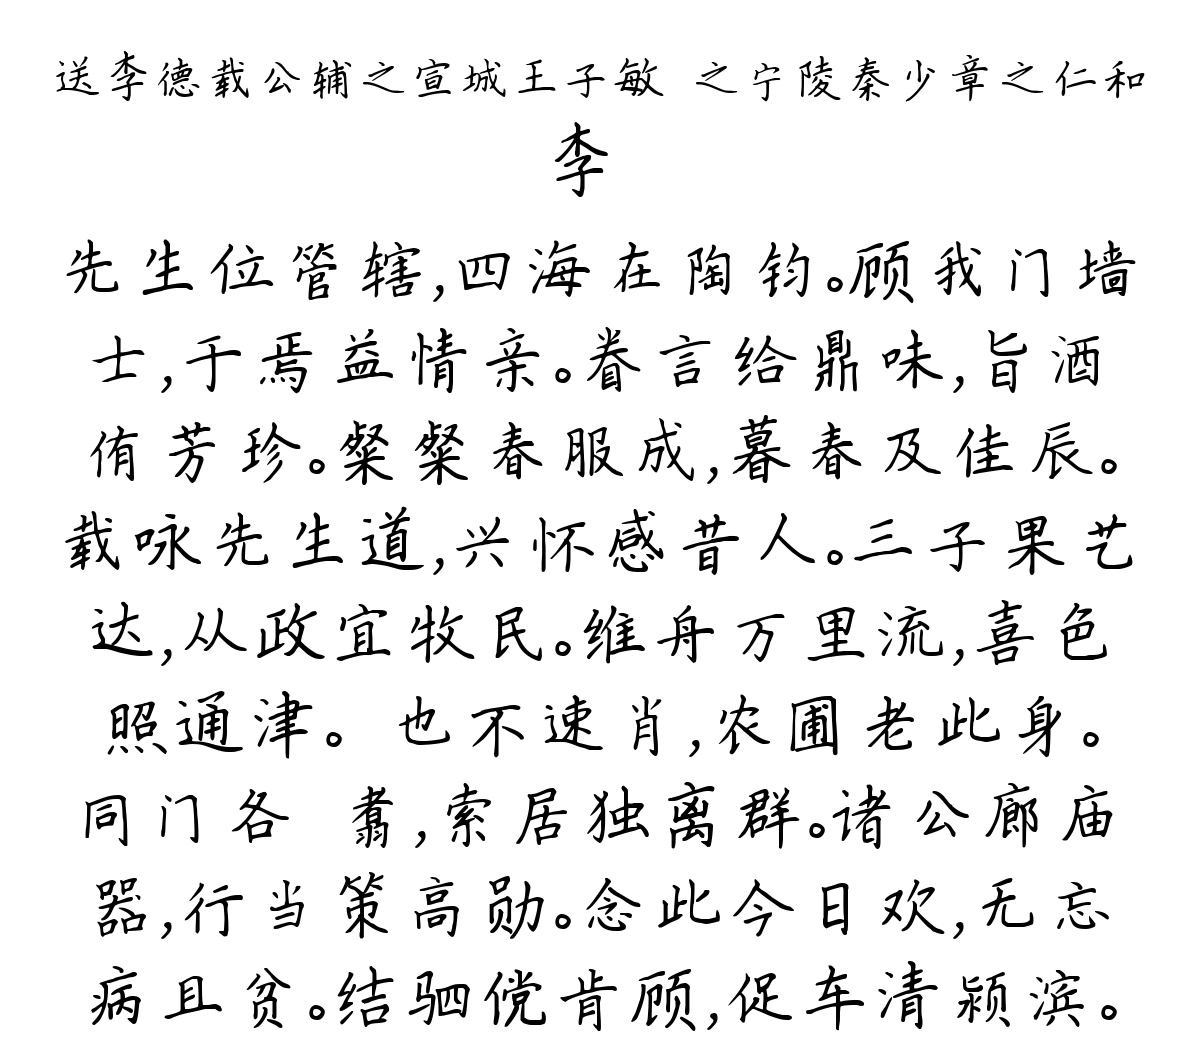 送李德载公辅之宣城王子敏 之宁陵秦少章之仁和
李
先生位管辖,四海在陶钧。顾我门墙
士,于焉益情亲。眷言给鼎味,旨酒
侑芳珍。粲粲春服成,暮春及佳辰。
载咏先生道,兴怀感昔人。三子果艺
达,从政宜牧民。维舟万里流,喜色
照通津。 也不速肖,农圃老此身。
同门各 翥,索居独离群。诸公廊庙
器,行当策高勋。念此今日欢,无忘
病且贫。结驷傥肯顾,促车清颍滨。